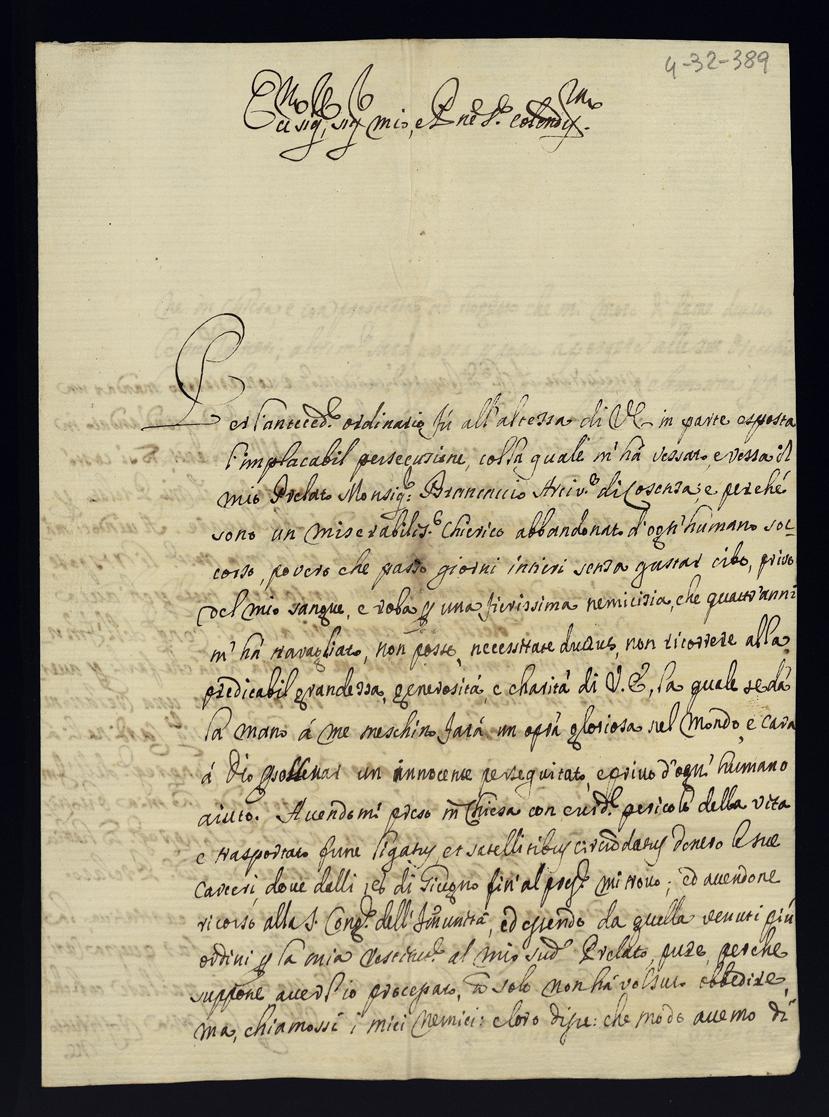 4-32-389
Em̃o Sig.r, Sig.r mio, e P̃ne S.e Colendis.mo
Per l'anteced.e ordinario fù all'altezza di V.E. in parte esposta
l'implacabil persecuzione, colla quale m'hà vessato, e vessa il
mio Prelato Monsig.r Brancaccio Arciv.o di Cosenza; e perché
sono un miserabilis.o Chierico abbandonato d'ogn'humano soc-
corso, povero che passo giorni intieri senza gustar cibo, privo
del mio sangue, e roba p una fierissima nemicizia, che quattr'anni
m'hà travagliato, non posso, necessitate ductus, non ricorrere alla
predicabil grandezza, generosità, e charità di V.E., la quale se dà
la mano à me meschino farà un opra gloriosa nel Mondo, e cara
à Dio p sollevar un innocente perseguitato, e privo d'ogn'humano
aiuto. Avendomi preso in Chiesa con evid.e pericolo della vita
e trasportato fune ligatus, et satellitibus circumdatus dentro le sue
carceri, dove dalli 26 di Giugno fin'al pres.e mi trovo; ed avendone
ricorso alla S. Cong.e dell'Immunità, ed essendo da quella venuti più
ordini p la mia restituz.e al mio sud.o Prelato, pure, perche
suppone aver s'io procurato, nõ solo non hà volsuto obbedire,
ma, chiamossi i miei Nemici: e loro disse: che modo avemo di